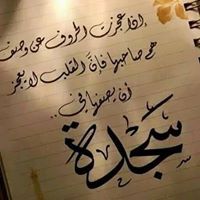 إذا عجزت الحروف عن وصف
هم صاحبها فإن القلب لا يعجز
أن يصفها في ..
سجدة